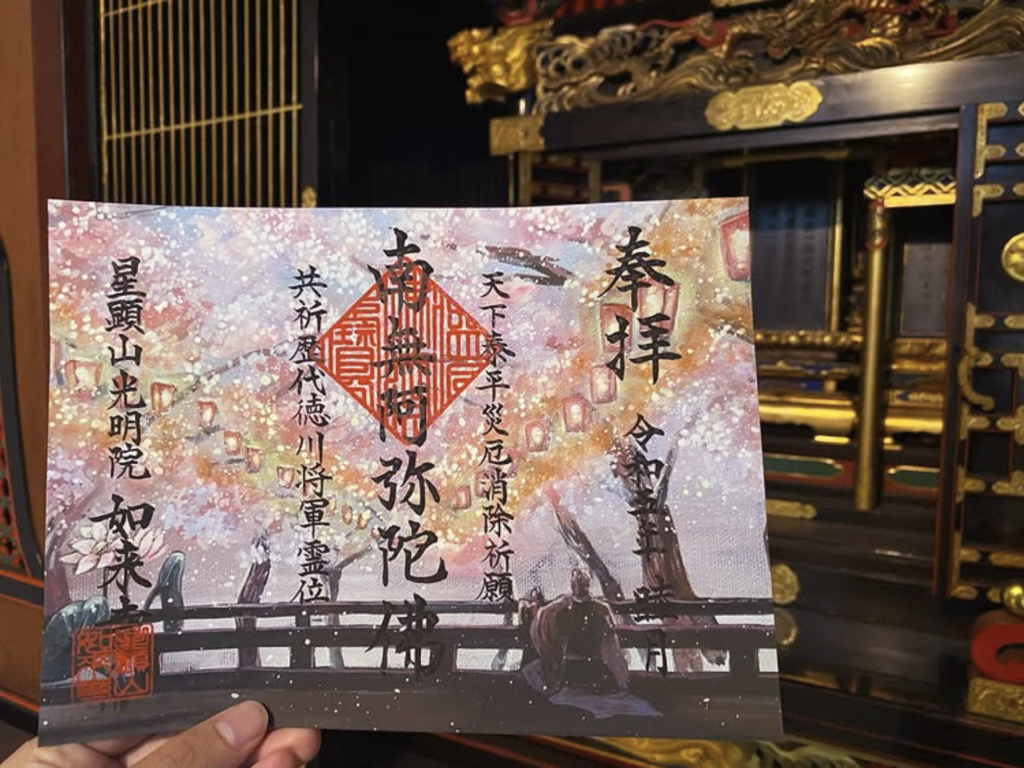 奉拝
令和五年 睦月
天下泰平災厄消除祈願
南無阿弥陀佛
共祈歴代徳川将軍霊位
星顕山光明院 如来寺